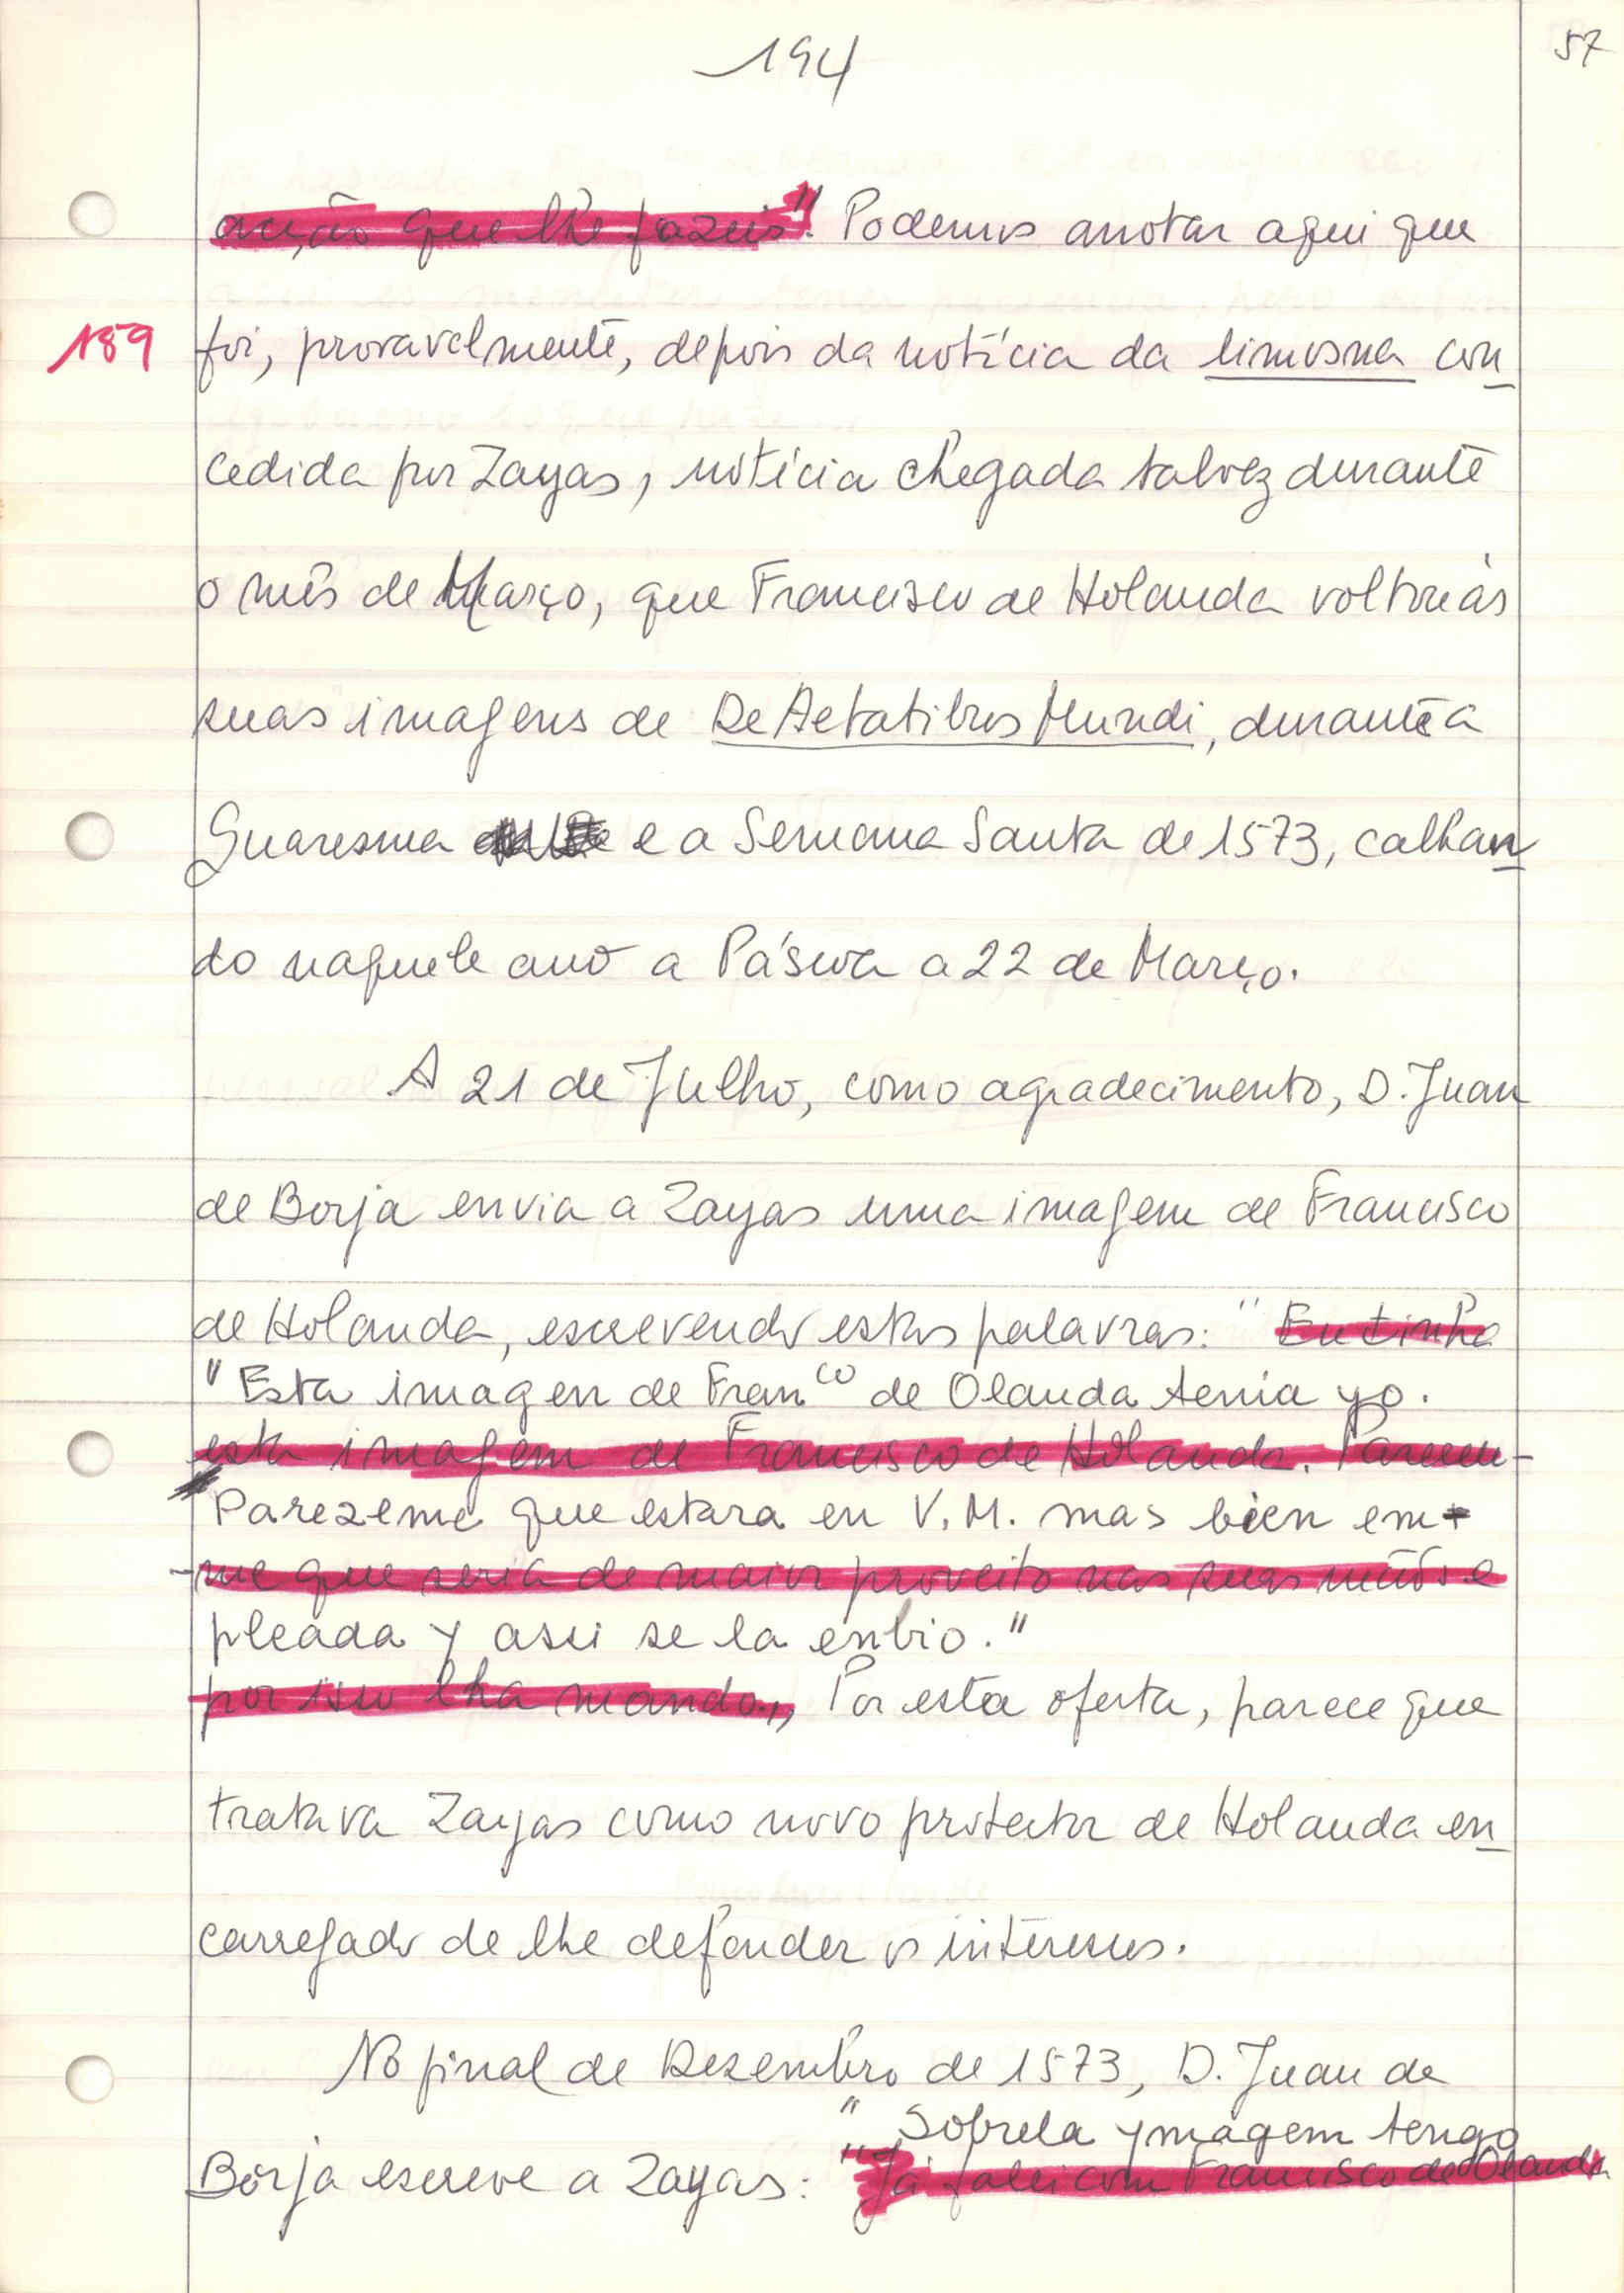 194
57
acção que lhe fazeis". Podemos anotar aqui que
189
foi, provavelmente, depois da notícia da limosna con
cedida por Zayas, notícia chegada talvez durante
o mês de Março, que Francisco de Holanda voltou às
suas imagens de De Aetatibus Mundi, durante a
Quaresma e a Semana Santa de 1573, calhan
do naquele ano a Páscoa a 22 de Março.
A 21 de Julho, como agradecimento, D. Juan
de Borja envia a Zayas uma imagem de Francisco
de Holanda, escrevendo estas palavras: "Eu tinha
"Esta imagen de Franco de Olanda tenia yo.
esta imagem de Francisco de Holanda. Parecen-
Parezeme que estara en V. M. mas bien em-
-me que seria de maior proveito nas suas mãos e
pleada y assi se la enbio."
por isso lha mando," Por esta oferta, parece que
tratava Zayas como novo protector de Holanda en
carregado de lhe defender os interesses.
No final de Dezembro de 1573, D. Juan de
" Sobrela ymagem tengo
Borja escreve a Zayas: "Já falei com Francisco de Olanda